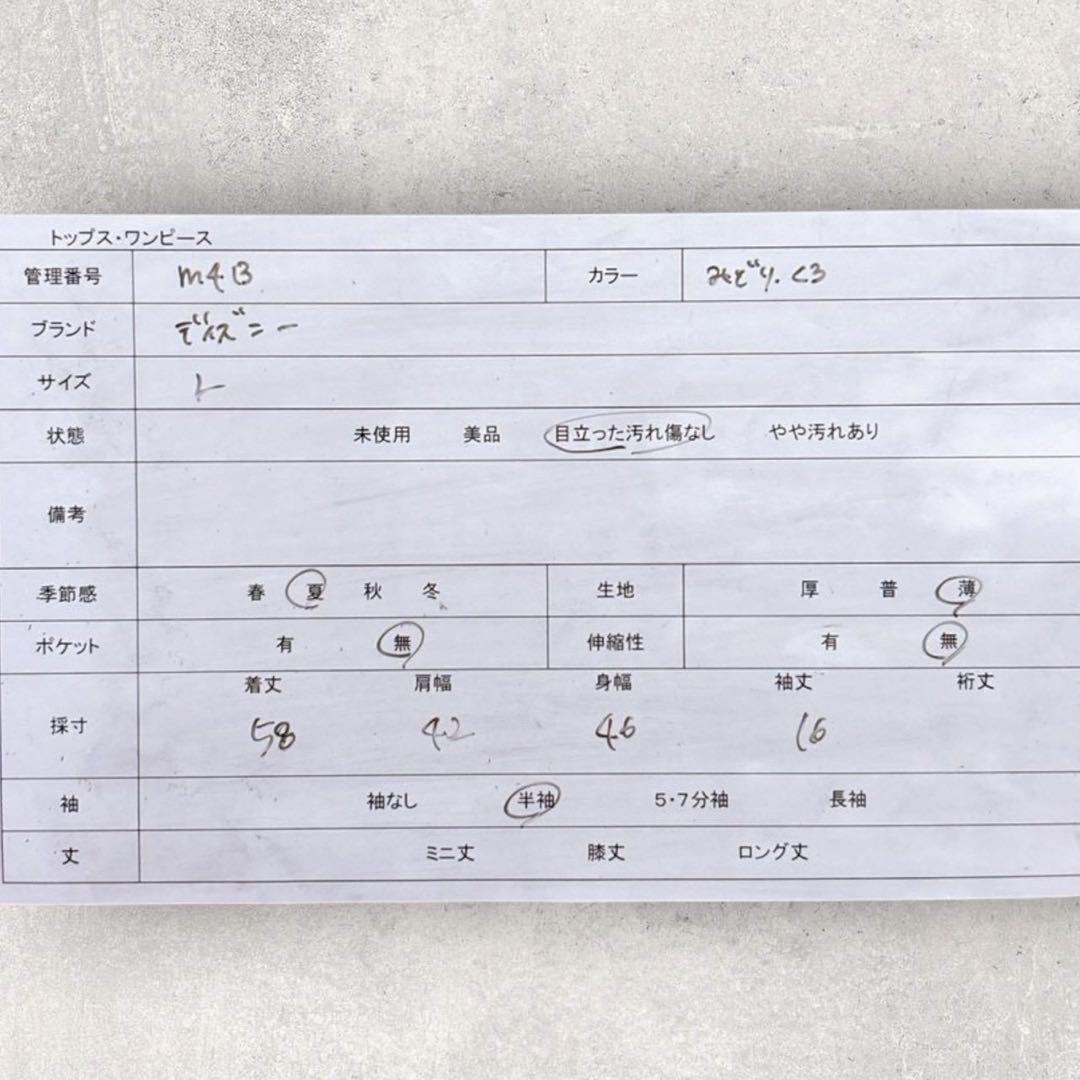 トップス・ワンピース
管理番号 M4B カラー みどり.くろ
ブランド ディズニー
サイズ L
状態 未使用 美品 目立った汚れ傷なし やや汚れあり
備考
季節感 春 夏 秋 冬 生地 厚 普 薄
ポケット 有 無 伸縮性 有 無
着丈 肩幅 身幅 袖丈 裄丈
採寸 58 42 46 16
袖 袖なし 半袖 5・7分袖 長袖
丈 ミニ丈 膝丈 ロング丈